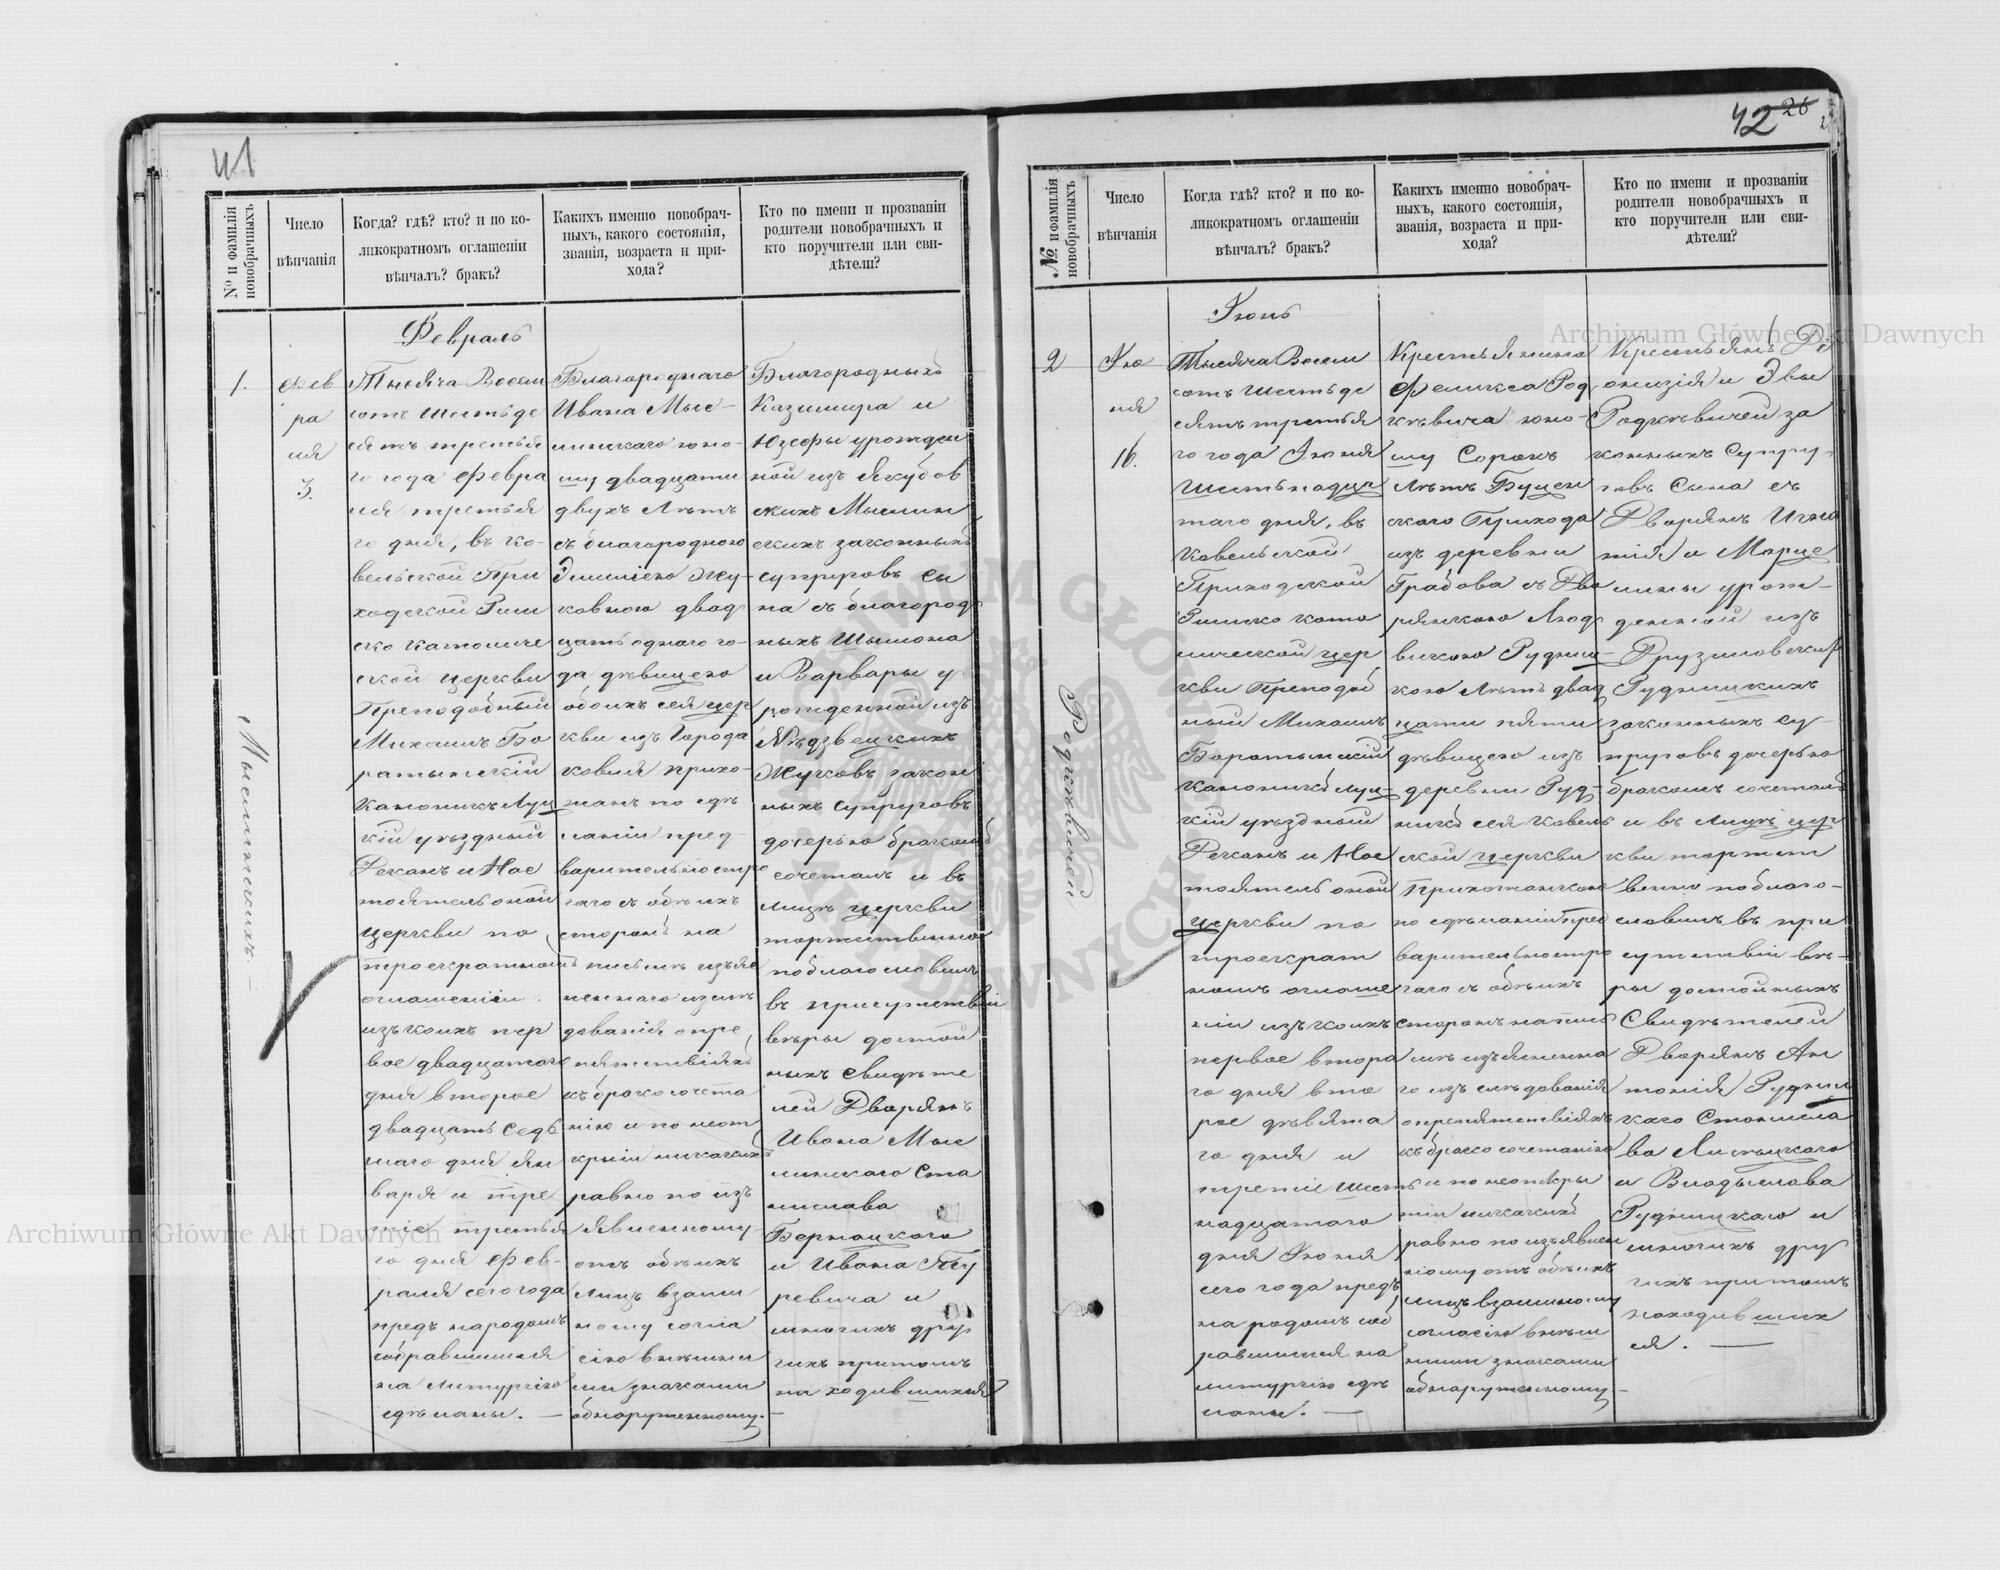 41
№ и фамилія новобрачныхъ
Число вѣнчанія
Когда? гдѣ? кто? и по ко-
ликократномъ оглашеніи
вѣнчалъ? бракъ?
Какихъ именно новобрач-
ныхъ, какого состоянія,
званія, возраста и при-
хода?
Кто по имени и прозваніи
родители новобрачныхъ и
кто поручители или сви-
дѣтели?
1.
Мыслинскихъ.
Фев
ра
ля
3.
Февраль
Тысяча Восем
сотъ шестьде
сятъ третья
го года Февра
ля третья
го дня, въ Ко-
вельской При
ходской Рим
ско католиче
ской церкви
Преподобный
Михаилъ Бо
ратынскій
Каноникъ Луц
кій уѣздный
Деканъ и Нас
тоятель оной
церкви по
троекратномъ
оглашеніи
изъ коихъ пер
вое двадцатаго
дня второе
двадцать седь
маго дня Ян
варя и тре
тіе третья
го дня Фев-
раля сего года
предъ народомъ
собравшимся
на литургію
сдѣланы. —
Благороднаго
Ивана Мыс-
линскаго юно-
шу двадцати
двухъ лѣтъ
съ благородною
Эмиліею Жу-
ковною двад
цать однаго го-
да дѣвицею
обоихъ сея цер
кви изъ города
Ковля прихо-
жанъ по сдѣ
ланіи пред-
варительно стро
гаго съ обѣихъ
сторонъ на
письмѣ изъяс
неннаго изслѣ
дованія о пре
пятствіяхъ
къ бракосочета
нію и по неот
крыіи никакихъ
равно по изъ
явленному
отъ обѣихъ
лицъ взаим
ному согла
сію внѣшни
ми знаками
обнаруженному.
Благородныхъ
Казимира и
Юзефы урожден
ной изъ Якубов
скихъ Мыслин
скихъ законныхъ
супруговъ сы
на съ благород
ныхъ Шымона
и Варвары у
рожденной изъ
Нѣдзвецкихъ
Жуковъ закон
ныхъ супруговъ
дочерью бракомъ
сочеталъ и въ
лицѣ церкви
торжественно
поблагословилъ
въ присутствіи
вѣры достой
ныхъ свидѣте
лей Дворянъ
Ивана Мыс
линскаго Ста
нислава
Бернацкаго
и Ивана
ревича и
многихъ дру
гихъ притомъ
находившихся
42 26
№ и фамилія новобрачныхъ
Число вѣнчанія
Когда гдѣ? кто? и по ко-
ликократномъ оглашеніи
вѣнчалъ? бракъ?
Какихъ именно новобрач-
ныхъ, какого состоянія,
званія, возраста и при-
хода?
Кто по имени и прозваніи
родители новобрачныхъ и
кто поручители или сви-
дѣтели?
2
Родкѣвичей
Ію
ня
16.
Іюнь
Тысяча Восем
сотъ шестьде
сятъ третья
го года Іюня
Шестьнадца
таго дня, въ
Ковельской
Приходской
Римско като
лической цер
кви Преподоб
ный Михаилъ
Боратынскій
Каноникъ Луц-
кій уѣздный
Деканъ и Нас
тоятель оной
церкви по
троекрат
номъ оглаше
ніи изъ коихъ
первое втора
го дня вто
рое девята
го дня и
третіе шесть
надцатаго
дня Іюня
сего года предъ
народомъ соб
равшимся на
литургію сдѣ
ланы. —
Крестьянина
Феликса Род
кѣвича юно-
шу Сорокъ
лѣтъ Буцен
скаго Прихода
изъ деревни
Грабова съ Дво
рянкою Люд
викою Рудниц-
кою лѣтъ двад
цати пяти
дѣвицею изъ
деревни Руд-
никъ сея Ковель
ской церкви
Прихожанкою
по сдѣланіи пред
варительно стро
гаго съ обѣихъ
сторонъ на пись
мѣ изъясненна
го изслѣдованія
о препятствіяхъ
къ бракосочетанію
и по неоткры
тіи никакихъ
равно по изъявлен
ному отъ обѣихъ
лицъ взаимному
согласію внѣш
ними знаками
обнаруженному
Крестьянъ Ді
онизія и Эвы
Родкѣвичей за
конныхъ супру
говъ сына съ
Дворянъ Игна
тія и Марце
лины урож-
денной изъ
Друзиловскихъ
Рудницкихъ
законныхъ су-
пруговъ дочерью
бракомъ сочеталъ
и въ лицѣ цер
кви торжест
венно поблаго-
словилъ въ при
сутствіи вѣ-
ры достойныхъ
Свидѣтелей
Дворянъ Ан
тонія Рудниц
каго Станисла
ва
и Владыслава
Рудницкаго и
многихъ дру
гихъ притомъ
находивших
ся. —
Archiwum Główne Akt Dawnych
Archiwum Główne Akt Dawnych
ARCHIWUM GŁÓWNE AKT DAWNYCH